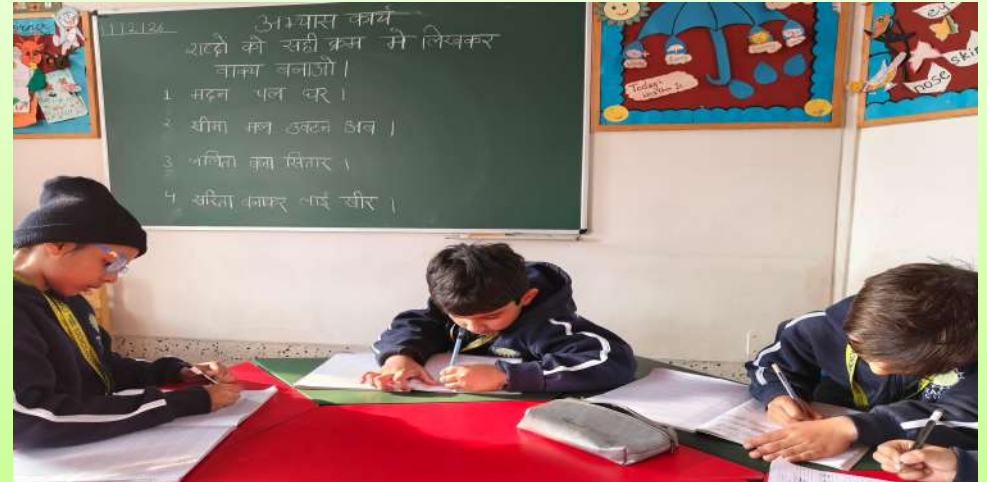 11|2|26
अभ्यास कार्य
शब्दो को सही क्रम मे लिखकर
वाक्य बनाओ।
1 मदन चल घर।
2 सीमा मल उबटन अब।
3 ललिता बजा सितार।
4 सरिता बनाकर लाई खीर।
Today's
weather is
eye
skin
nose